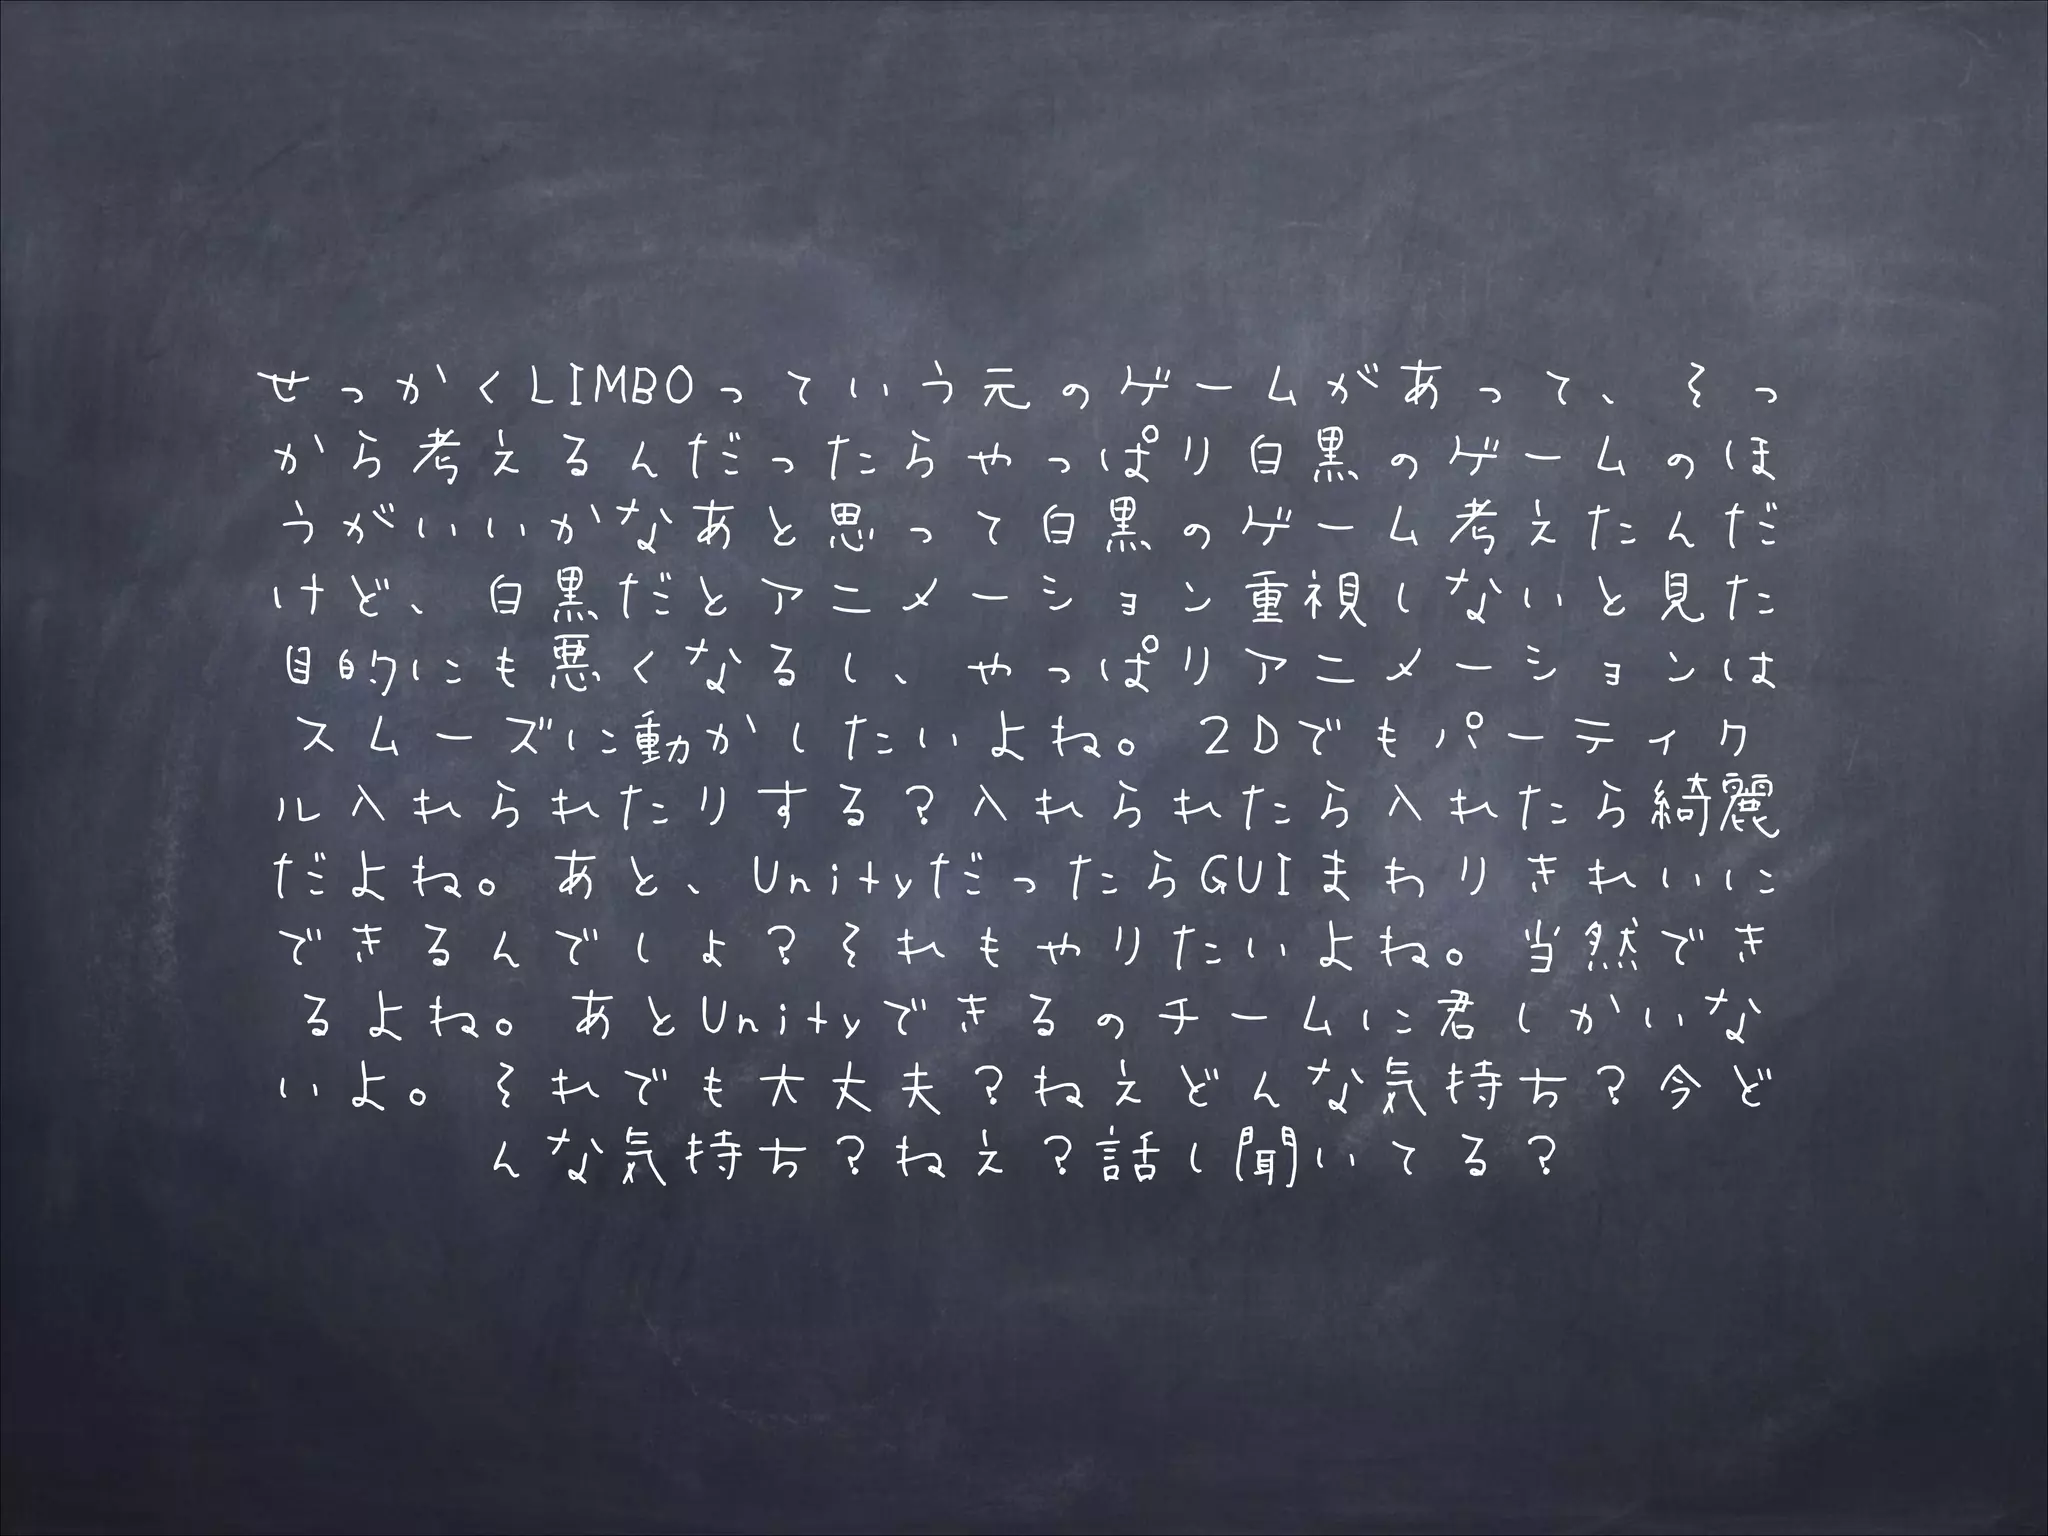 せっかくLIMBOっていう元のゲームがあって、そっ
から考えるんだったらやっぱり白黒のゲームのほ
うがいいかなあと思って白黒のゲーム考えたんだ
けど、白黒だとアニメーション重視しないと見た
目的にも悪くなるし、やっぱりアニメーションは
スムーズに動かしたいよね。2Dでもパーティク
ル入れられたりする？入れられたら入れたら綺麗
だよね。あと、UnityだったらGUIまわりきれいに
できるんでしょ？それもやりたいよね。当然でき
るよね。あとUnityできるのチームに君しかいな
いよ。それでも大丈夫？ねえどんな気持ち？今ど
んな気持ち？ねえ？話し聞いてる？